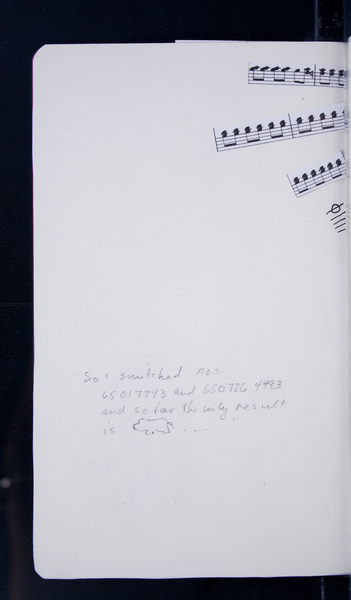 So I switched nos
65017743 and 650726 4493
and so far the only result
is